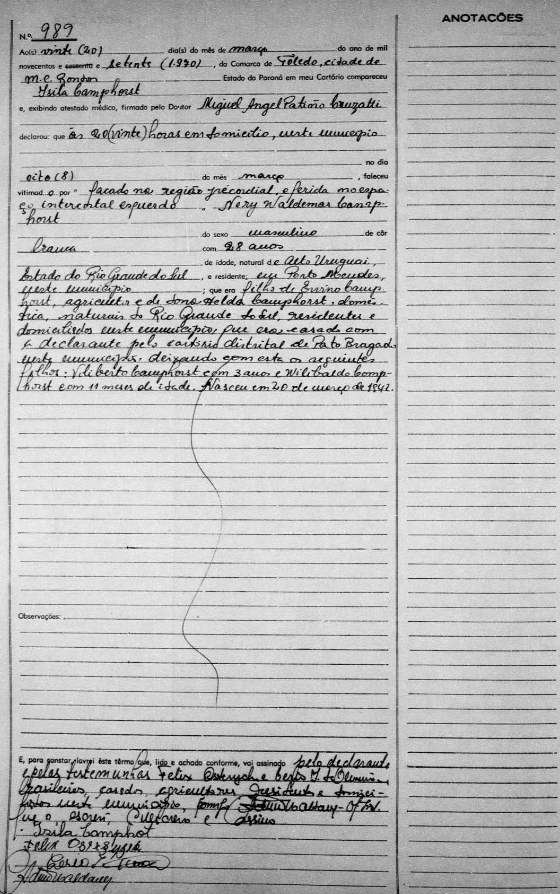 ANOTAÇÕES
N.º 989
Ao(s) vinte (20) dia(s) do mês de março do ano de mil
novecentos e sessenta e setenta (1.970), da Comarca de Toledo, cidade de
M.C. Rondon Estado do Paraná em meu Cartório compareceu
Isila Camphorst
e, exibindo atestado médico, firmado pelo Doutor Miguel Angel Patiño Cruzatti
declarou: que às 20 (vinte) horas em domicilio, neste municipio
no dia
oito (8) do mês março, faleceu
vitimado por " facado na região precordial, e ferida no espa-
ço intercostal esquerdo . Nery Waldemar Camp-
horst
do sexo masculino de côr
branca com 28 anos
de idade, natural de Alto Uruguai,
Estado do Rio Grande do Sul, e residente, em Porto Mendes,
neste municipio ; que era filho de Ervino Camp-
horst, agricultor e de dona Helda Camphorst, domés-
tica, naturais do Rio Grande do Sul, residentes e
domiciliados neste municipio, que era casado com
a declarante pelo cartório distrital de Pato Bragado
neste municipio, deixando com esta os seguintes
filhos: Viliberto Camphorst com 3 anos e Wilibaldo Camp-
horst com 11 meses de idade. Nasceu em 20 de março de 1942.
Observações:
E, para constar, lavrei êste têrmo que, lido e achado conforme, vai assinado pelo declarante
e pelas testemunhas Felix e
brasileiros, casados, agricultores residentes e domici-
liados neste municipio,
que o escrevi, e assino
Isila Camphorst
Felix